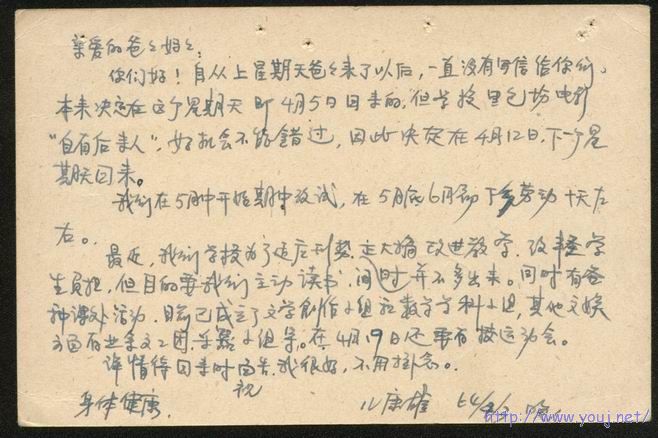 亲爱的爸々妈々:
你们好！自从上星期天爸々来了以后，一直没有写信给你们。
本来决定在这个星期天即4月5日回来的，但学校里包场电影
“自有后来人”，好机会不能错过，因此决定在4月12日，下个星
期天回来。
我们在5月中开始期中考试，在5月底6月初下乡劳动十天左
右。
最近，我们学校为了适应形势，正大搞改进教学，改重学
生负担，但目的要我们主动读书，间时并不多出来。同时有各
种课外活动，目前已成立了文学创作小组和数学学科小组，其他文娱
方面有业余文工团，乐器小组等。在4月19日还要有校运动会。
详情待回来时面告。我很好，不用挂念。
祝
身体健康
儿 康雄 64/4/
http://www.youj.net/